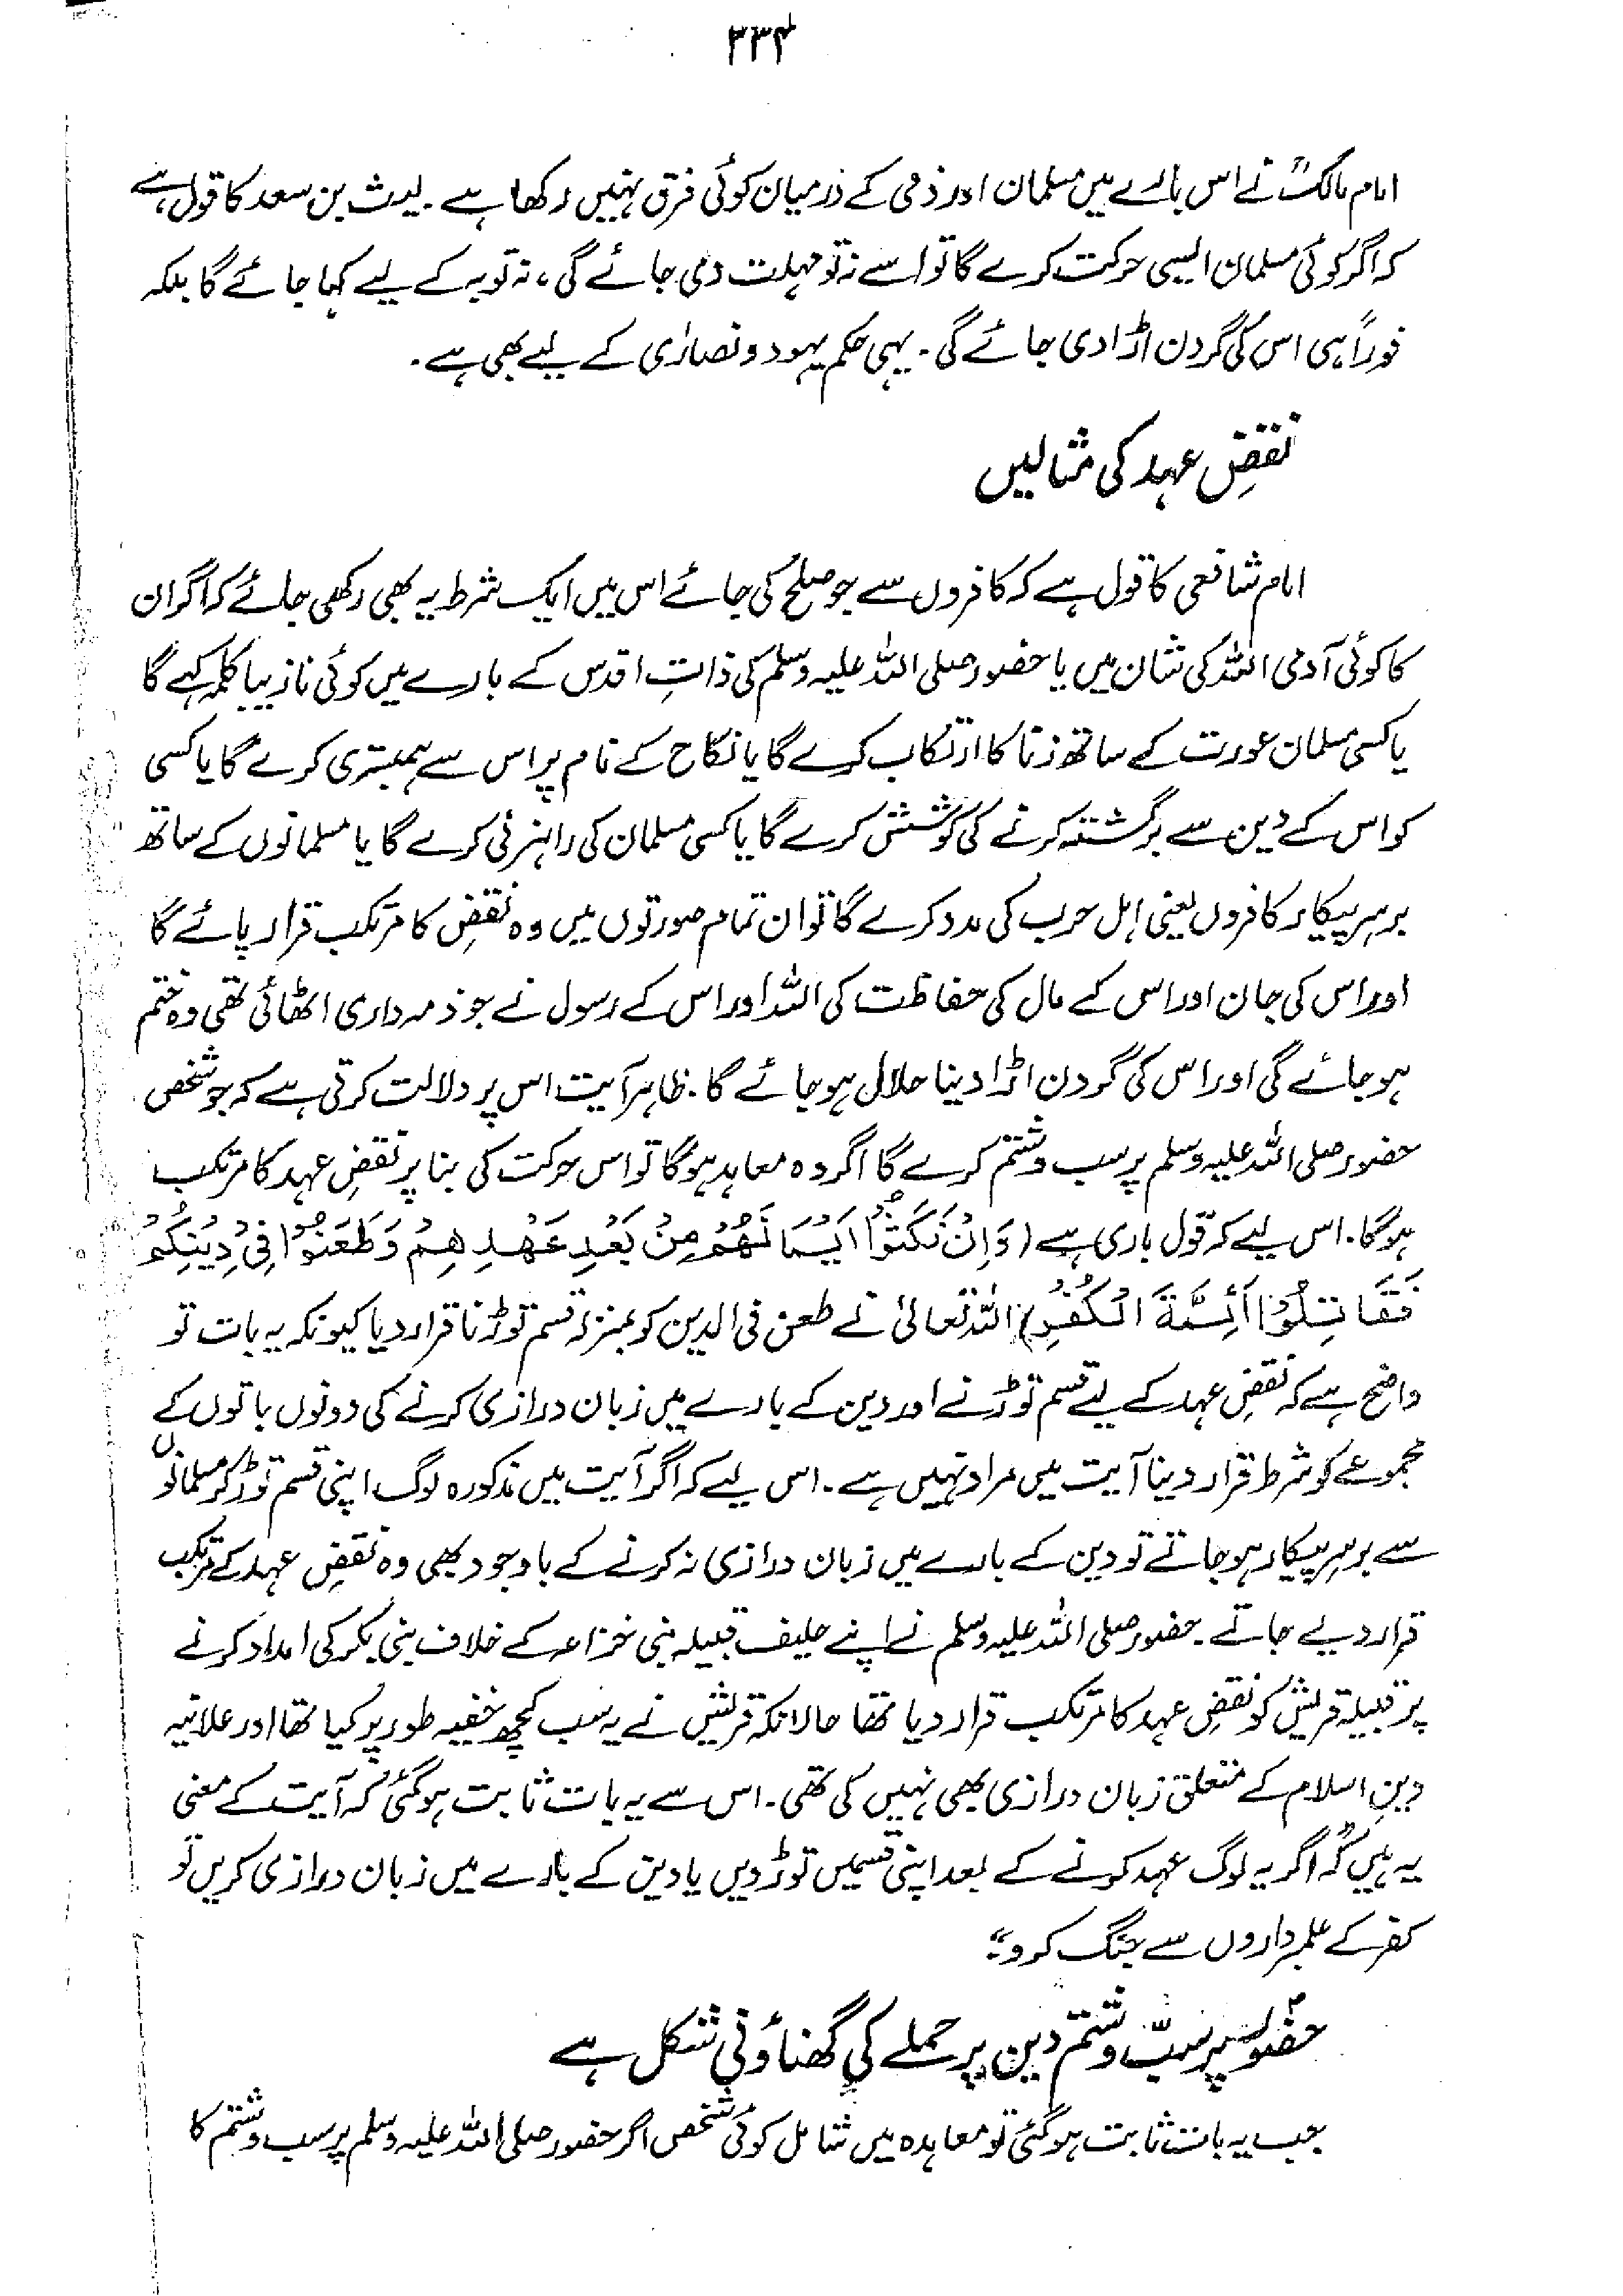 ۳۳۴
امام مالکؒ نے اس بارے میں مسلمان اور ذمی کے درمیان کوئی فرق نہیں رکھا ہے۔ لیث بن سعد کا قول ہے
کہ اگر کوئی مسلمان ایسی حرکت کرے گا تو اسے نہ تو مہلت دی جائے گی، نہ توبہ کے لیے کہا جائے گا بلکہ
فوراً ہی اس کی گردن اڑا دی جائے گی۔ یہی حکم یہود و نصاریٰ کے لیے بھی ہے۔
نقضِ عہد کی مثالیں
امام شافعی کا قول ہے کہ کافروں سے جو صلح کی جائے اس میں ایک شرط یہ بھی رکھی جائے کہ اگر ان
کا کوئی آدمی اللہ کی شان میں یا حضور صلی اللہ علیہ وسلم کی ذاتِ اقدس کے بارے میں کوئی نازیبا کلمہ کہے گا
یا کسی مسلمان عورت کے ساتھ زنا کا ارتکاب کرے گا یا نکاح کے نام پر اس سے ہمبستری کرے گا یا کسی
کو اس کے دین سے برگشتہ کرنے کی کوشش کرے گا یا کسی مسلمان کی راہزنی کرے گا یا مسلمانوں کے ساتھ
برسرِ پیکار کافروں یعنی اہل حرب کی مدد کرے گا تو ان تمام صورتوں میں وہ نقضِ کا مرتکب قرار پائے گا
اور اس کی جان اور اس کے مال کی حفاظت کی اللہ اور اس کے رسول نے جو ذمہ داری اٹھائی تھی وہ ختم
ہو جائے گی اور اس کی گردن اڑا دینا حلال ہو جائے گا۔ ظاہر آیت اس پر دلالت کرتی ہے کہ جو شخص
حضور صلی اللہ علیہ وسلم پر سب و شتم کرے گا اگر وہ معاہد ہو گا تو اس حرکت کی بنا پر نقضِ عہد کا مرتکب
ہوگا۔ اس لیے کہ قول باری ہے (وَاِنْ نَكَثُوْا اَيْمَانَهُمْ مِنْ بَعْدِ عَهْدِهِمْ وَطَعَنُوْا فِيْ دِيْنِكُمْ
فَقَاتِلُوْا اَئِمَّةَ الْكُفْرِ) اللہ تعالیٰ نے طعن فی الدین کو بمنزلہ قسم توڑنا قرار دیا کیونکہ یہ بات تو
واضح ہے کہ نقضِ عہد کے لیے قسم توڑنے اور دین کے بارے میں زبان درازی کرنے کی دونوں باتوں کے
مجموعے کو شرط قرار دینا آیت میں مراد نہیں ہے۔ اس لیے کہ اگر آیت میں مذکورہ لوگ اپنی قسم توڑ کر مسلمانوں
سے برسرِ پیکار ہو جاتے تو دین کے بارے میں زبان درازی نہ کرنے کے باوجود بھی وہ نقضِ عہد کے مرتکب
قرار دیے جاتے۔ حضور صلی اللہ علیہ وسلم نے اپنے حلیف قبیلہ بنی خزاعہ کے خلاف بنی بکر کی امداد کرنے
پر قبیلہ قریش کو نقضِ عہد کا مرتکب قرار دیا تھا حالانکہ قریش نے یہ سب کچھ خفیہ طور پر کیا تھا اور علانیہ
دینِ اسلام کے متعلق زبان درازی بھی نہیں کی تھی۔ اس سے یہ بات ثابت ہو گئی کہ آیت کے معنی
یہ ہیں کہ "اگر یہ لوگ عہد کرنے کے بعد اپنی قسمیں توڑ دیں یا دین کے بارے میں زبان درازی کریں تو
کفر کے علمبرداروں سے جنگ کرو"۔
حضورؐ پر سبّ و شتم دین پر حملے کی گھناؤنی شکل ہے
جب یہ بات ثابت ہو گئی تو معاہدہ میں شامل کوئی شخص اگر حضور صلی اللہ علیہ وسلم پر سب و شتم کا